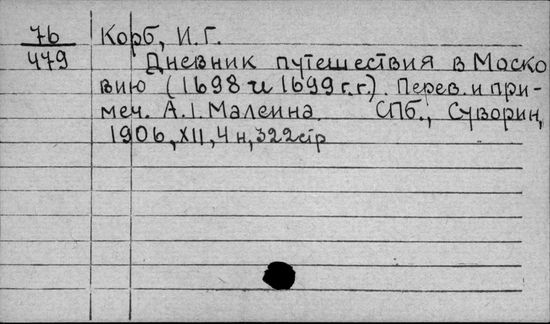 76 Корб, И.Г.
479 Дневник путешествия в Моско
вию (1698 и 1699 г.г.). Перев. и при-
меч. А.I.Малеина. СПб., Суворин,
1906, XII, 4н, 322стр